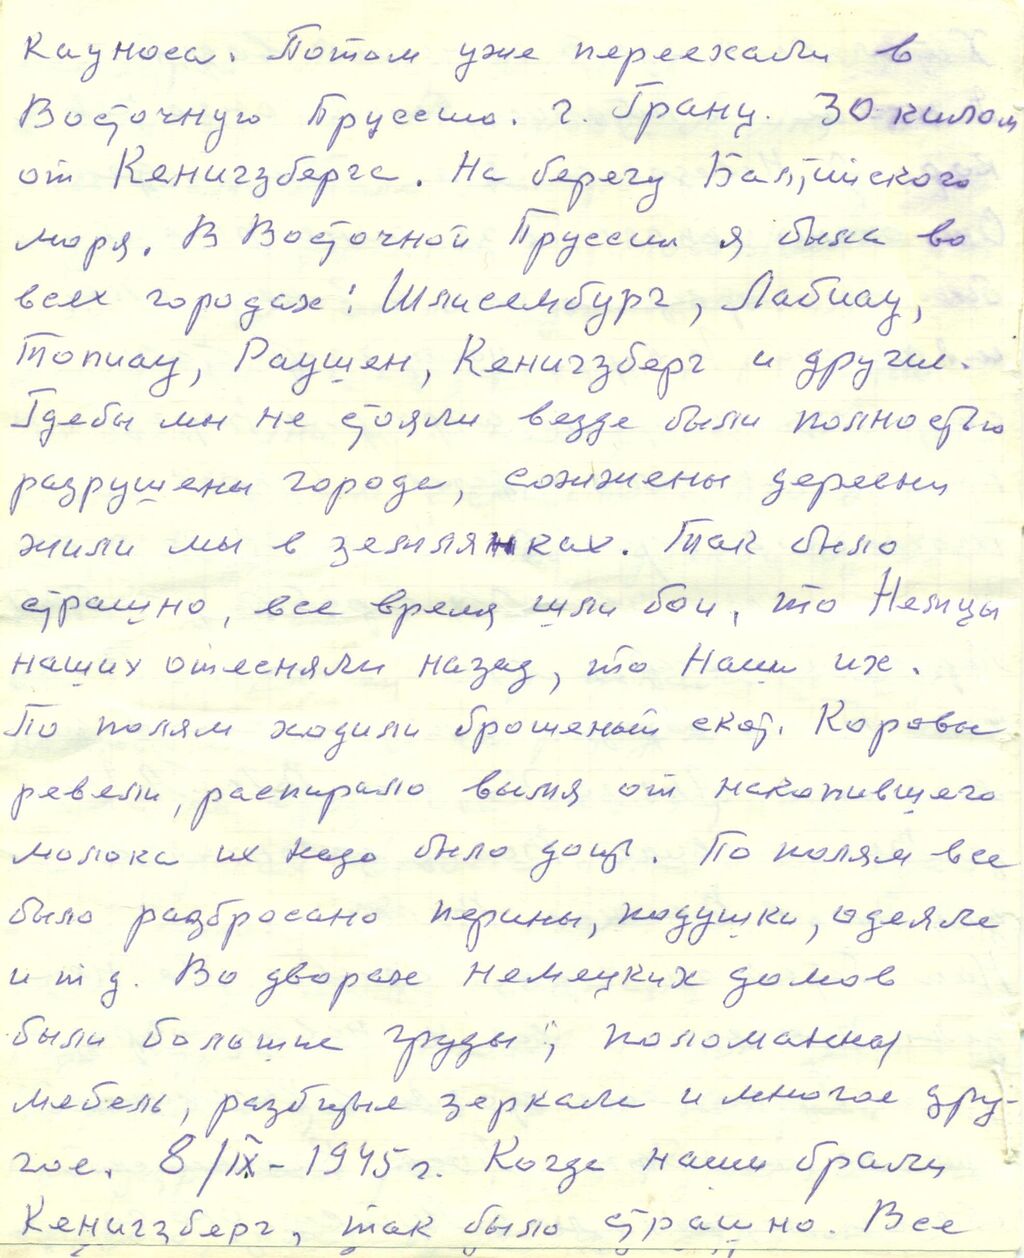 Кауноса. Потом уже переехали в
Восточную Пруссию. г. Гранц. 30 килом
от Кенигзберга. На берегу Балтийского
моря. В Восточной Пруссии я была во
всех городах: Шлисембург, Лабиау,
Топиау, Раушен, Кенигзберг и другие.
Гдебы мы не стояли везде были полностью
разрушены города, сожжены деревни
жили мы в землянках. Так было
страшно, все время шли бои, то Немцы
наших отесняли назад, то Наши их.
По полям ходили брошеный скот. Коровы
ревели, распирало вымя от накопившего
молока их надо было доить. По полям все
было разбросано перины, подушки, одеяла
и т д. Во дворах немецких домов
были большие груды; поломанная
мебель, разбитые зеркала и многое дру-
гое. 8/IX-1945 г. Когда наши брали
Кенигзберг, так было страшно. Все